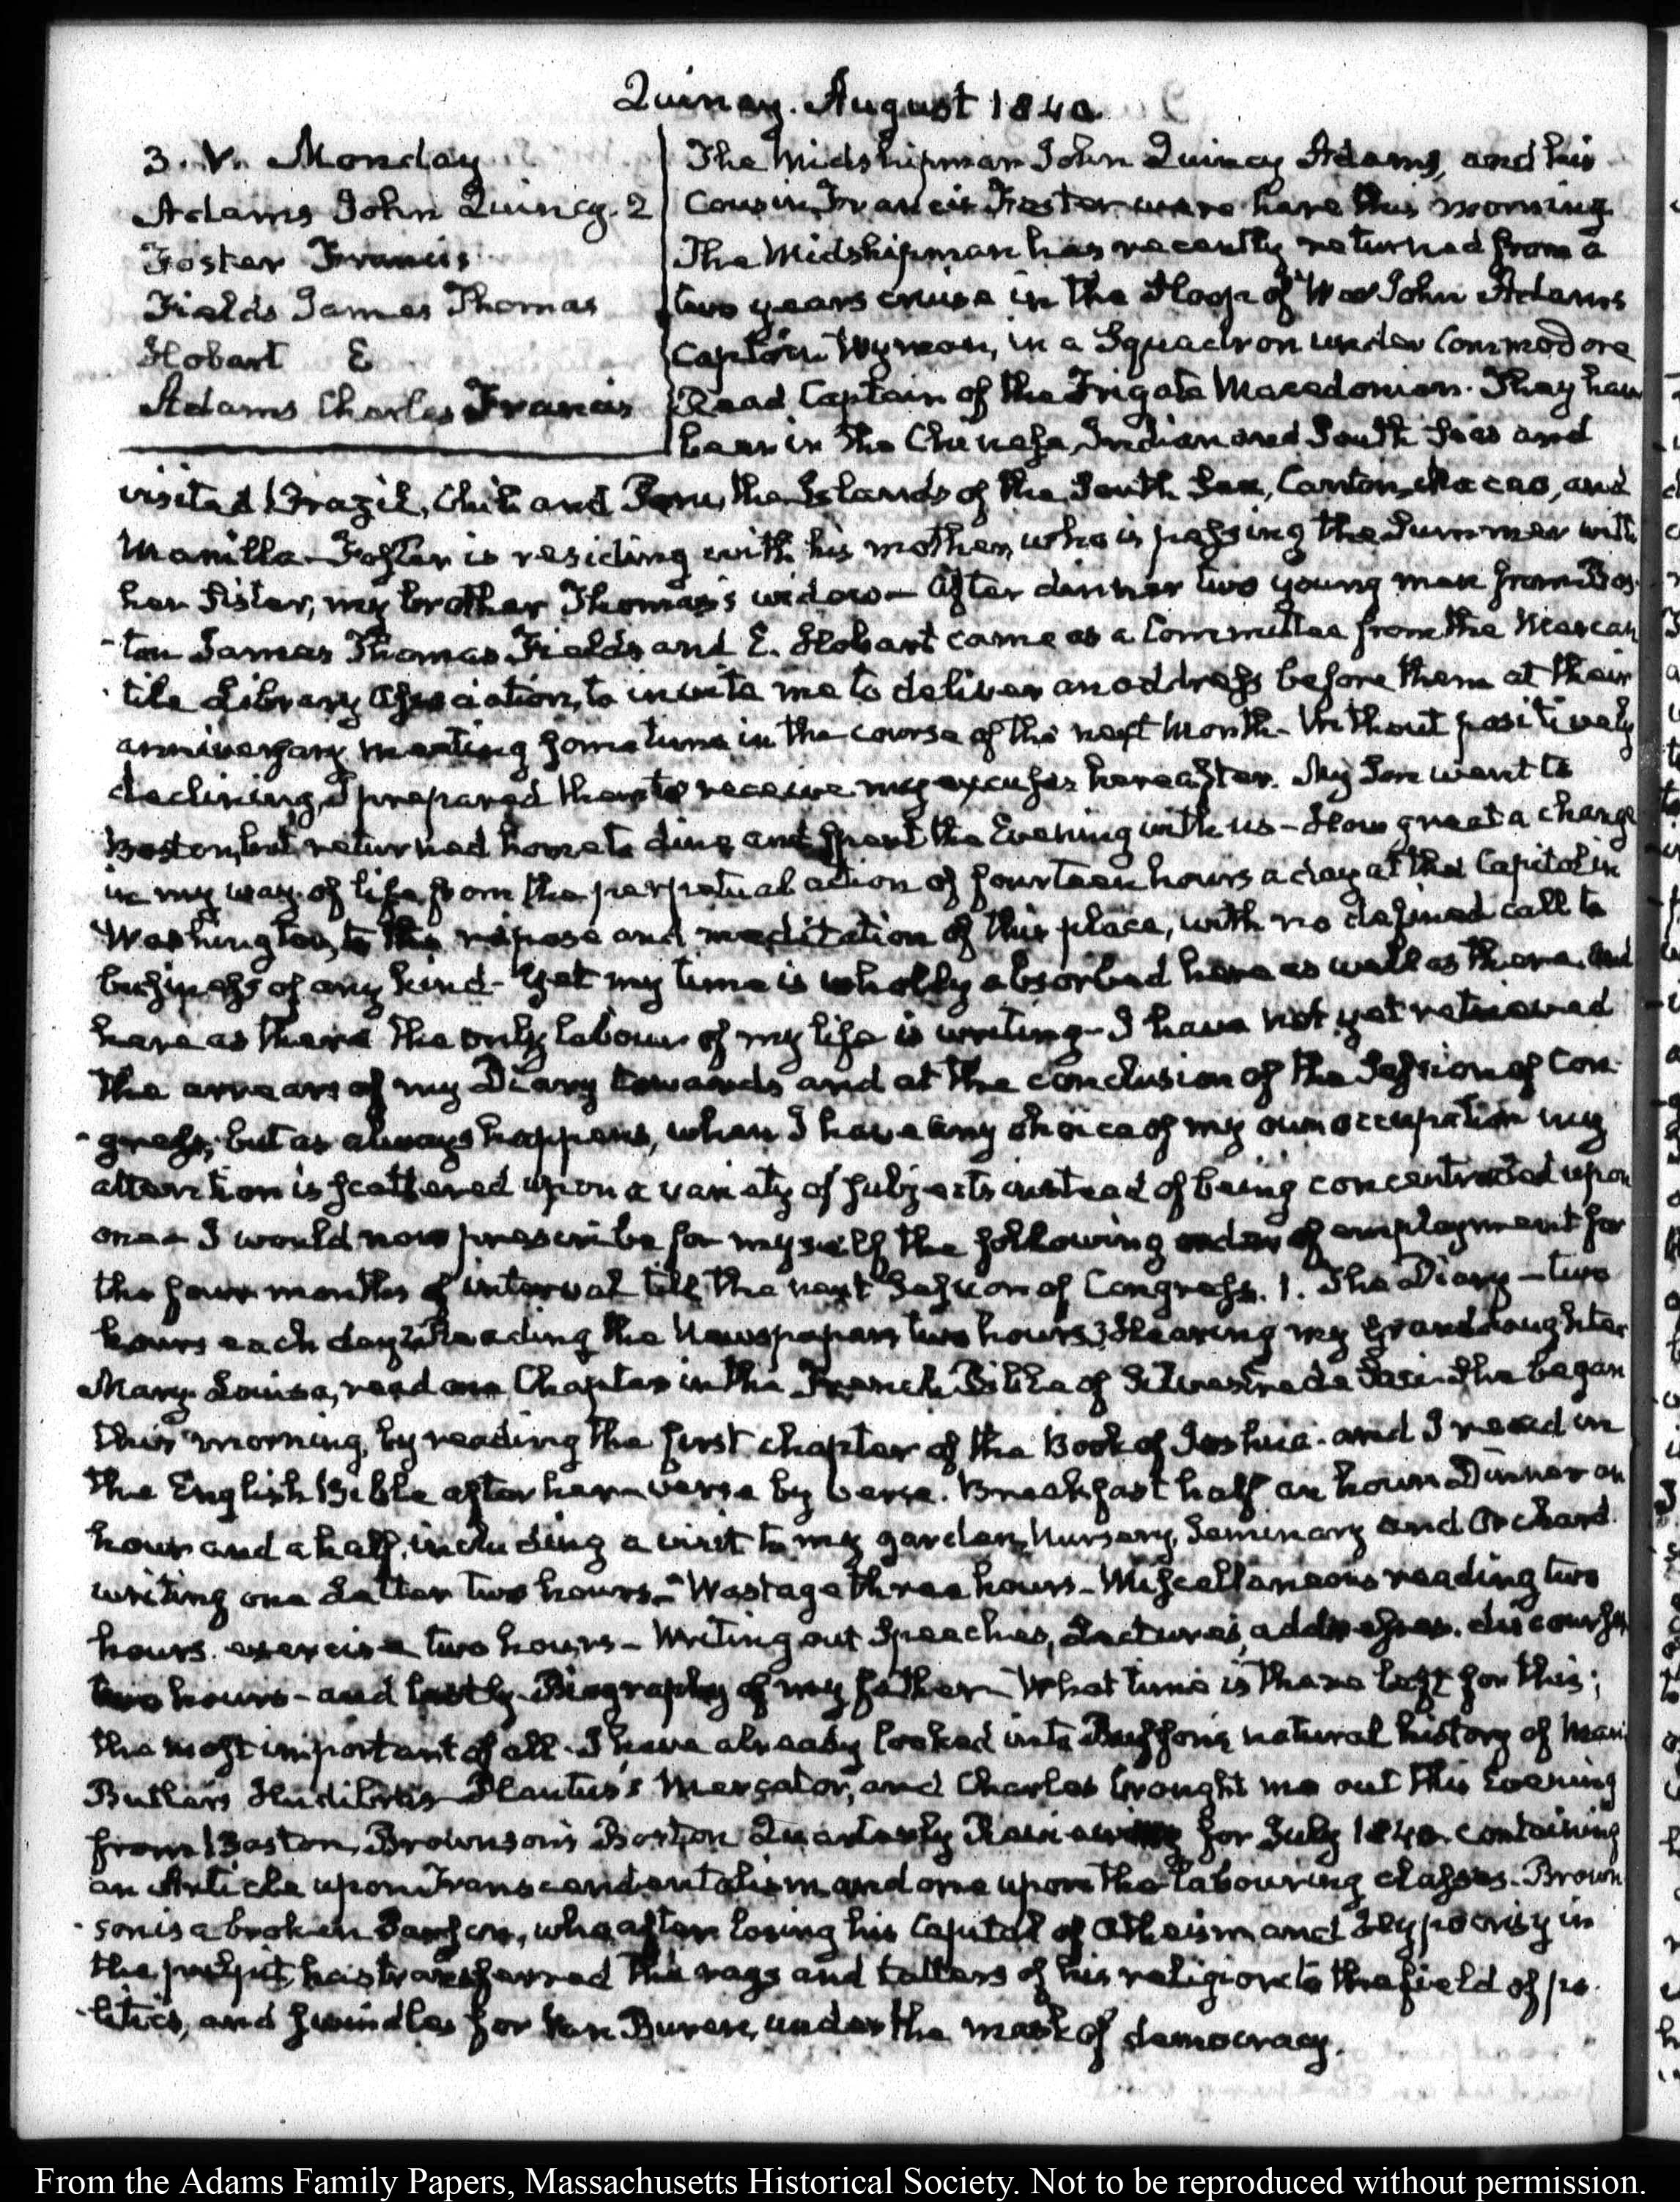 Quincy. August 1840.
3. V. Monday
Adams John Quincy. 2
Foster Francis
Fields James Thomas
Hobart E
Adams Charles Francis
The Midshipman John Quincy Adams, and his
Cousin Francis Foster were here this morning
The Midshipman has recently returned from a
two years cruise in the Sloop of War John Adams
Captain Wyman, in a Squadron under Commodore
Read Captain of the Frigate Macedonian. They have
been in the Chinese, Indian and South Seas and
visited Brazil, Chili and Peru, the Islands of the South Sea, Canton, Macao, and
Manilla—Foster is residing with his mother, who is passing the Summer with
her Sister, my brother Thomas's widow—After dinner two young men from Bos-
-ton James Thomas Fields and E. Hobart came as a Committee from the Mercan
tile Library Association, to invite me to deliver an address before them at their
anniversary meeting sometime in the course of the next Month—Without positively
declining, I prepared them to receive my excuses hereafter. My Son went to
Boston, but returned home to dine and spent the Evening with us—How great a change
in my way of life from the perpetual action of fourteen hours a day at the Capitol in
Washington, to the repose and meditation of this place, with no defined call to
business of any kind—Yet my time is wholly absorbed here as well as there. And
here as there the only labour of my life is writing—I have not yet retrieved
the arrears of my Diary towards and at the conclusion of the Session of Con-
-gress; but as always happens, when I have any choice of my own occupation my
attention is scattered upon a variety of subjects instead of being concentrated upon
one—I would now prescribe for myself the following order of employment for
the four months of interval till the next Session of Congress. 1. The Diary—two
hours each day 2 Reading the Newspapers two hours, 3 Hearing my Granddaughter
Mary Louisa, read one Chapter in the French Bible of Le Maistre de Saci—She began
this morning, by reading the first chapter of the Book of Joshua. and I read in
the English Bible after her—verse by verse. Breakfast half an hour Dinner an
hour and a half, including a visit to my garden, Nursery, Seminary and Orchard.
writing one Letter two hours—Wastage three hours—Miscellaneous reading two
hours. exercise two hours—Writing out Speeches, Lectures, addresses. discourses
two hours—and lastly Biography of my father—What time is there left for this;
the most important of all—I have already looked into Buffon's natural history of Man
Butler's Hudibras—Plautus's Mercator, and Charles brought me out this Evening
from Boston, Brownson's Boston Quarterly Review for July 1840. containing
an Article upon Transcendentalism and one upon the labouring classes—Brown
-son is a broken Parson, who after losing his Capital of Atheism and Hypocrisy in
the pulpit, has transferred the rags and tatters of his religion to the field of po-
-litics, and swindles for Van Buren, under the mask of democracy.
From the Adams Family Papers, Massachusetts Historical Society. Not to be reproduced without permission.